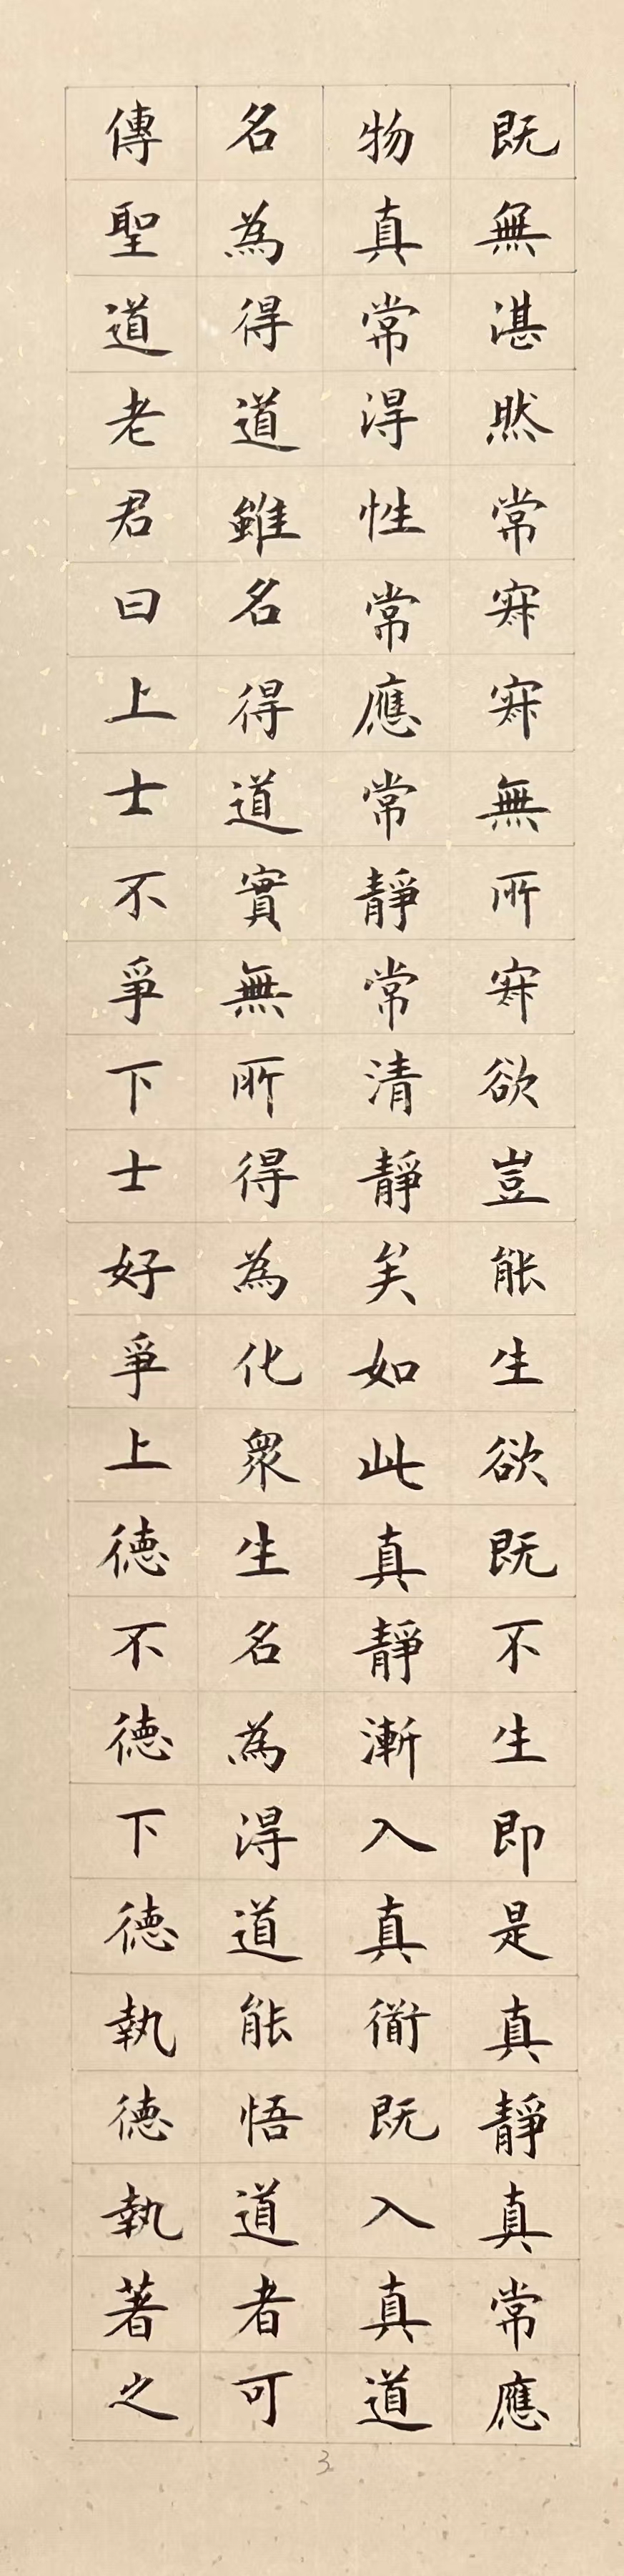 既無湛然常寂寂無所寂欲豈能生欲既不生即是真靜真常應
物真常淂性常應常靜常清靜矣如此真靜漸入真衜既入真道
名為得道雖名得道實無所得為化衆生名為淂道能悟道者可
傳聖道老君曰上士不爭下士好爭上徳不徳下徳執徳執著之
3